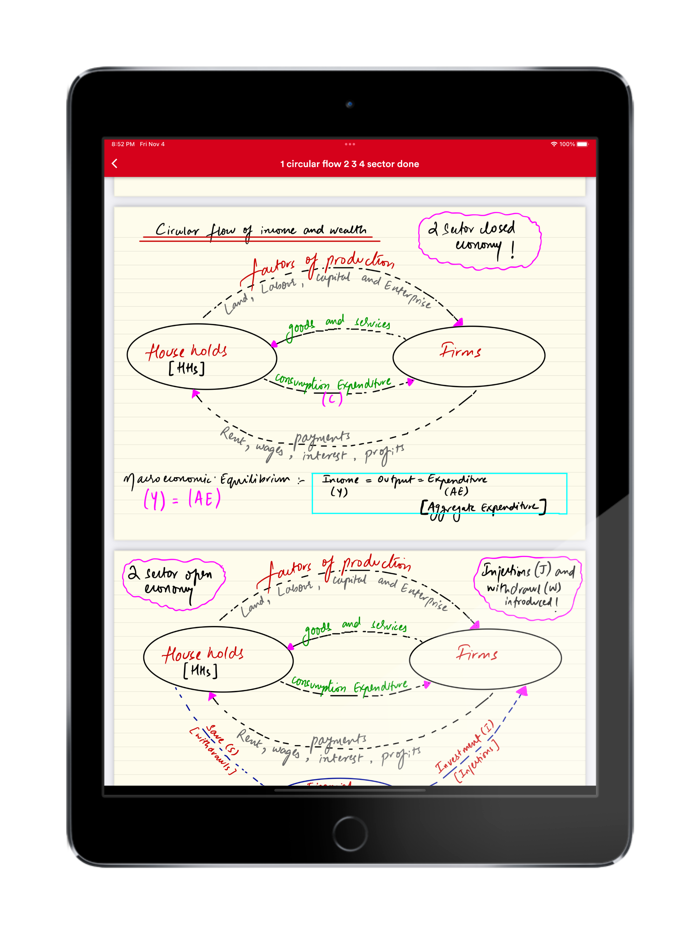 8:52 PM Fri Nov 4
100%
1 circular flow 2 3 4 sector done
Circular flow of income and wealth
2 Sector closed
economy !
factors of production
Land, Labour, capital and Enterprise
goods and services
House holds
[HHs]
Firms
consumption Expenditure
(C)
payments
Rent, wages, interest, profits
Macroeconomic Equilibrium :-
(Y) = (AE)
Income = Output = Expenditure
(Y) (AE)
[Aggregate Expenditure]
2 sector open
economy
factors of production
Land, Labour, capital and Enterprise
Injections (J) and
withdrawl (W)
introduced!
goods and services
House holds
[HHs]
Firms
consumption Expenditure
payments
Rent, wages, interest, profits
Save (S)
[withdrawls]
Investment (I)
[Injections]